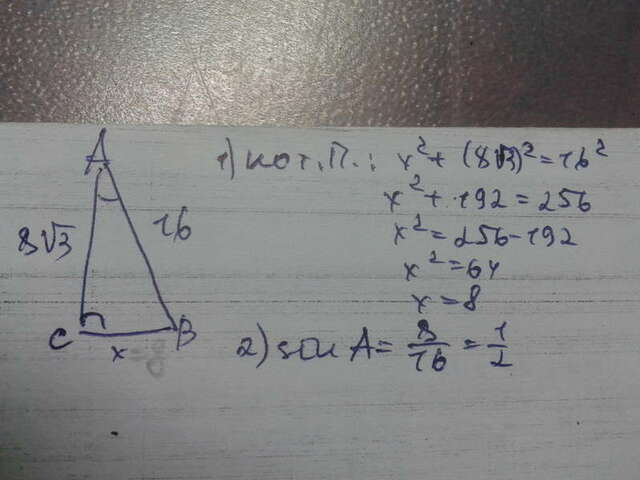 A
8√3
16
C
x
B
1) кот. П.: x² + (8√3)² = 16²
x² + 192 = 256
x² = 256 - 192
x² = 64
x = 8
2) sin A = 8/16 = 1/2